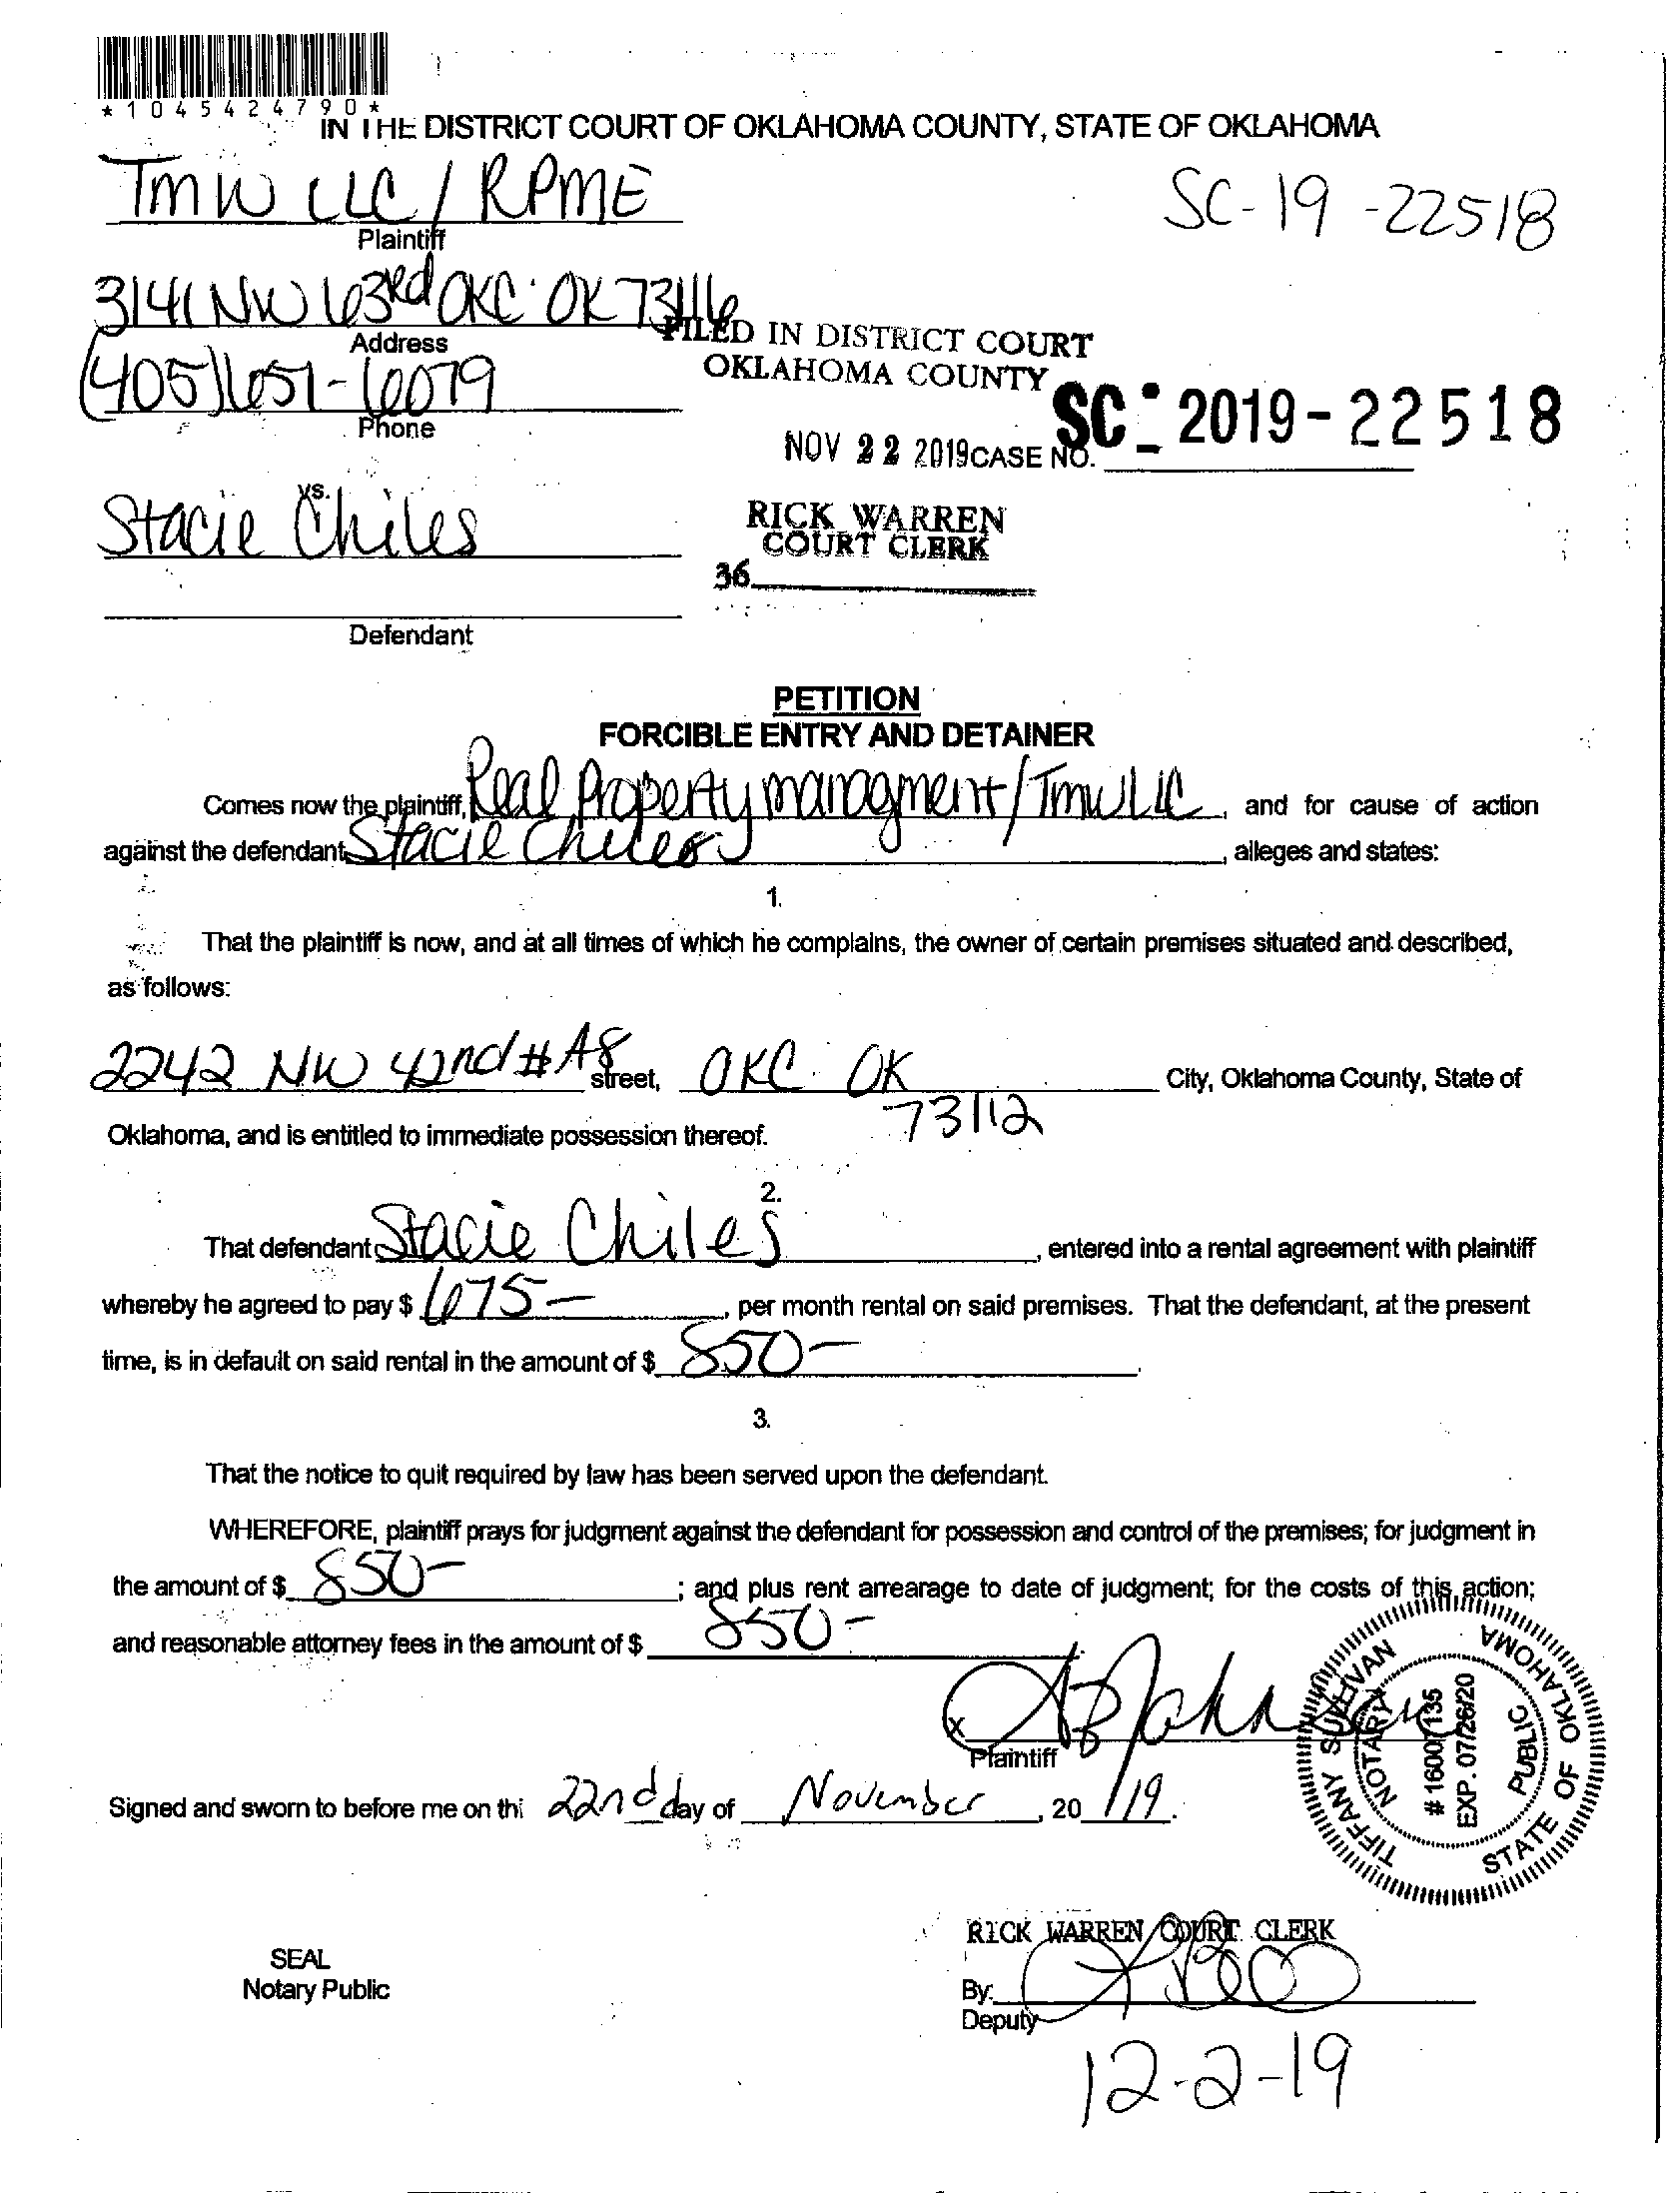 *1045424790*
IN THE DISTRICT COURT OF OKLAHOMA COUNTY, STATE OF OKLAHOMA
TMW LLC / RPME
SC-19-22518
Plaintiff
3141 NW 63rd OKC OK 73116
FILED IN DISTRICT COURT
Address
OKLAHOMA COUNTY
(405)651-6079
Phone
SC-2019-22518
NOV 22 2019 CASE NO.
vs.
Stacie Chiles
RICK WARREN
COURT CLERK
36
Defendant
PETITION
FORCIBLE ENTRY AND DETAINER
Comes now the plaintiff, Real Property managment/TmW LLC, and for cause of action
against the defendant, Stacie Chiles, alleges and states:
1.
That the plaintiff is now, and at all times of which he complains, the owner of certain premises situated and described,
as follows:
2242 NW 42nd # A8 street, OKC OK City, Oklahoma County, State of
73112
Oklahoma, and is entitled to immediate possession thereof.
2.
That defendant Stacie Chiles, entered into a rental agreement with plaintiff
whereby he agreed to pay $ 675-, per month rental on said premises. That the defendant, at the present
time, is in default on said rental in the amount of $ 850-.
3.
That the notice to quit required by law has been served upon the defendant.
WHEREFORE, plaintiff prays for judgment against the defendant for possession and control of the premises; for judgment in
the amount of $ 850-; and plus rent arrearage to date of judgment; for the costs of this action;
and reasonable attorney fees in the amount of $ 850-
x
Plaintiff
TIFFANY SULLIVAN
NOTARY PUBLIC
# 16007135
EXP. 07/26/20
STATE OF OKLAHOMA
Signed and sworn to before me on thi 22nd day of November, 20 19.
RICK WARREN COURT CLERK
SEAL
Notary Public
By:
Deputy
12-2-19